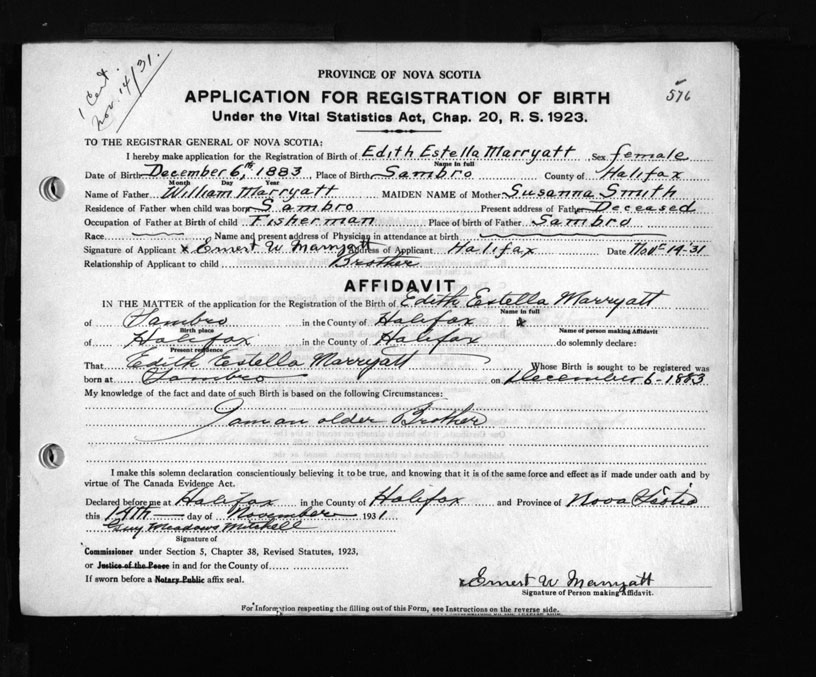 1 Cert.
Nov. 14/31.
576
PROVINCE OF NOVA SCOTIA
APPLICATION FOR REGISTRATION OF BIRTH
Under the Vital Statistics Act, Chap. 20, R. S. 1923.
TO THE REGISTRAR GENERAL OF NOVA SCOTIA:
I hereby make application for the Registration of Birth of Edith Estella Marryatt Sex female
Name in full
Date of Birth December 6,th 1883 Place of Birth Sambro County of Halifax
Month Day Year
Name of Father William Marryatt MAIDEN NAME of Mother Susanna Smith
Residence of Father when child was born Sambro Present address of Father Deceased
Occupation of Father at Birth of child Fisherman Place of birth of Father Sambro
Race Name and present address of Physician in attendance at birth
Signature of Applicant x Ernest W Marryatt Address of Applicant Halifax Date Nov 14-31
Relationship of Applicant to child Brother
AFFIDAVIT
IN THE MATTER of the application for the Registration of the Birth of Edith Estella Marryatt
Name in full
of Sambro in the County of Halifax
Birth place Name of person making Affidavit
of Halifax in the County of Halifax do solemnly declare:
Present residence
That Edith Estella Marryatt Whose Birth is sought to be registered was
born at Sambro on December 6-1883
My knowledge of the fact and date of such Birth is based on the following Circumstances:
I am an older Brother
I make this solemn declaration conscientiously believing it to be true, and knowing that it is of the same force and effect as if made under oath and by
virtue of The Canada Evidence Act.
Declared before me at Halifax in the County of Halifax and Province of Nova Scotia
this 14th day of November 1931
Guy Meadows Mitchell
Signature of
Commissioner under Section 5, Chapter 38, Revised Statutes, 1923,
or Justice of the Peace in and for the County of
If sworn before a Notary Public affix seal.
x Ernest W Marryatt
Signature of Person making Affidavit.
For Information respecting the filling out of this Form, see Instructions on the reverse side.